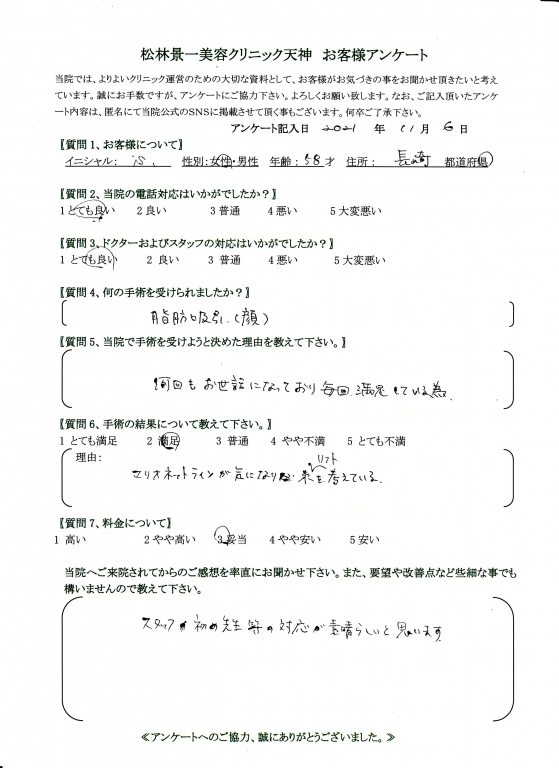 松林景一美容クリニック天神 お客様アンケート
当院では、よりよいクリニック運営のための大切な資料として、お客様がお気づきの事をお聞かせ頂きたいと考え
ています。誠にお手数ですが、アンケートにご協力下さい。よろしくお願い致します。なお、ご記入頂いたアンケ
ート内容は、匿名にて当院公式のSNSに掲載させて頂く事もございます。何卒ご了承下さい。
アンケート記入日 2021 年 11 月 6 日
【質問 1、お客様について】
イニシャル: 性別:女性・男性 年齢:58才 住所: 長崎 都道府県
【質問 2、当院の電話対応はいかがでしたか?】
1 とても良い 2 良い 3 普通 4 悪い 5 大変悪い
【質問 3、ドクターおよびスタッフの対応はいかがでしたか?】
1 とても良い 2 良い 3 普通 4 悪い 5 大変悪い
【質問 4、何の手術を受けられましたか?】
脂肪吸引(顔)
【質問 5、当院で手術を受けようと決めた理由を教えて下さい。】
何回もお世話になっており毎回満足している為。
【質問 6、手術の結果について教えて下さい。】
1 とても満足 2 満足 3 普通 4 やや不満 5 とても不満
理由:
リフト
ネットラインが気になり 糸を考えている。
【質問 7、料金について】
1 高い 2 やや高い 3 妥当 4 やや安い 5 安い
当院へご来院されてからのご感想を率直にお聞かせ下さい。また、要望や改善点など些細な事でも
構いませんので教えて下さい。
スタッフ 初め先生等の対応が素晴らしいと思います
≪アンケートへのご協力、誠にありがとうございました。≫